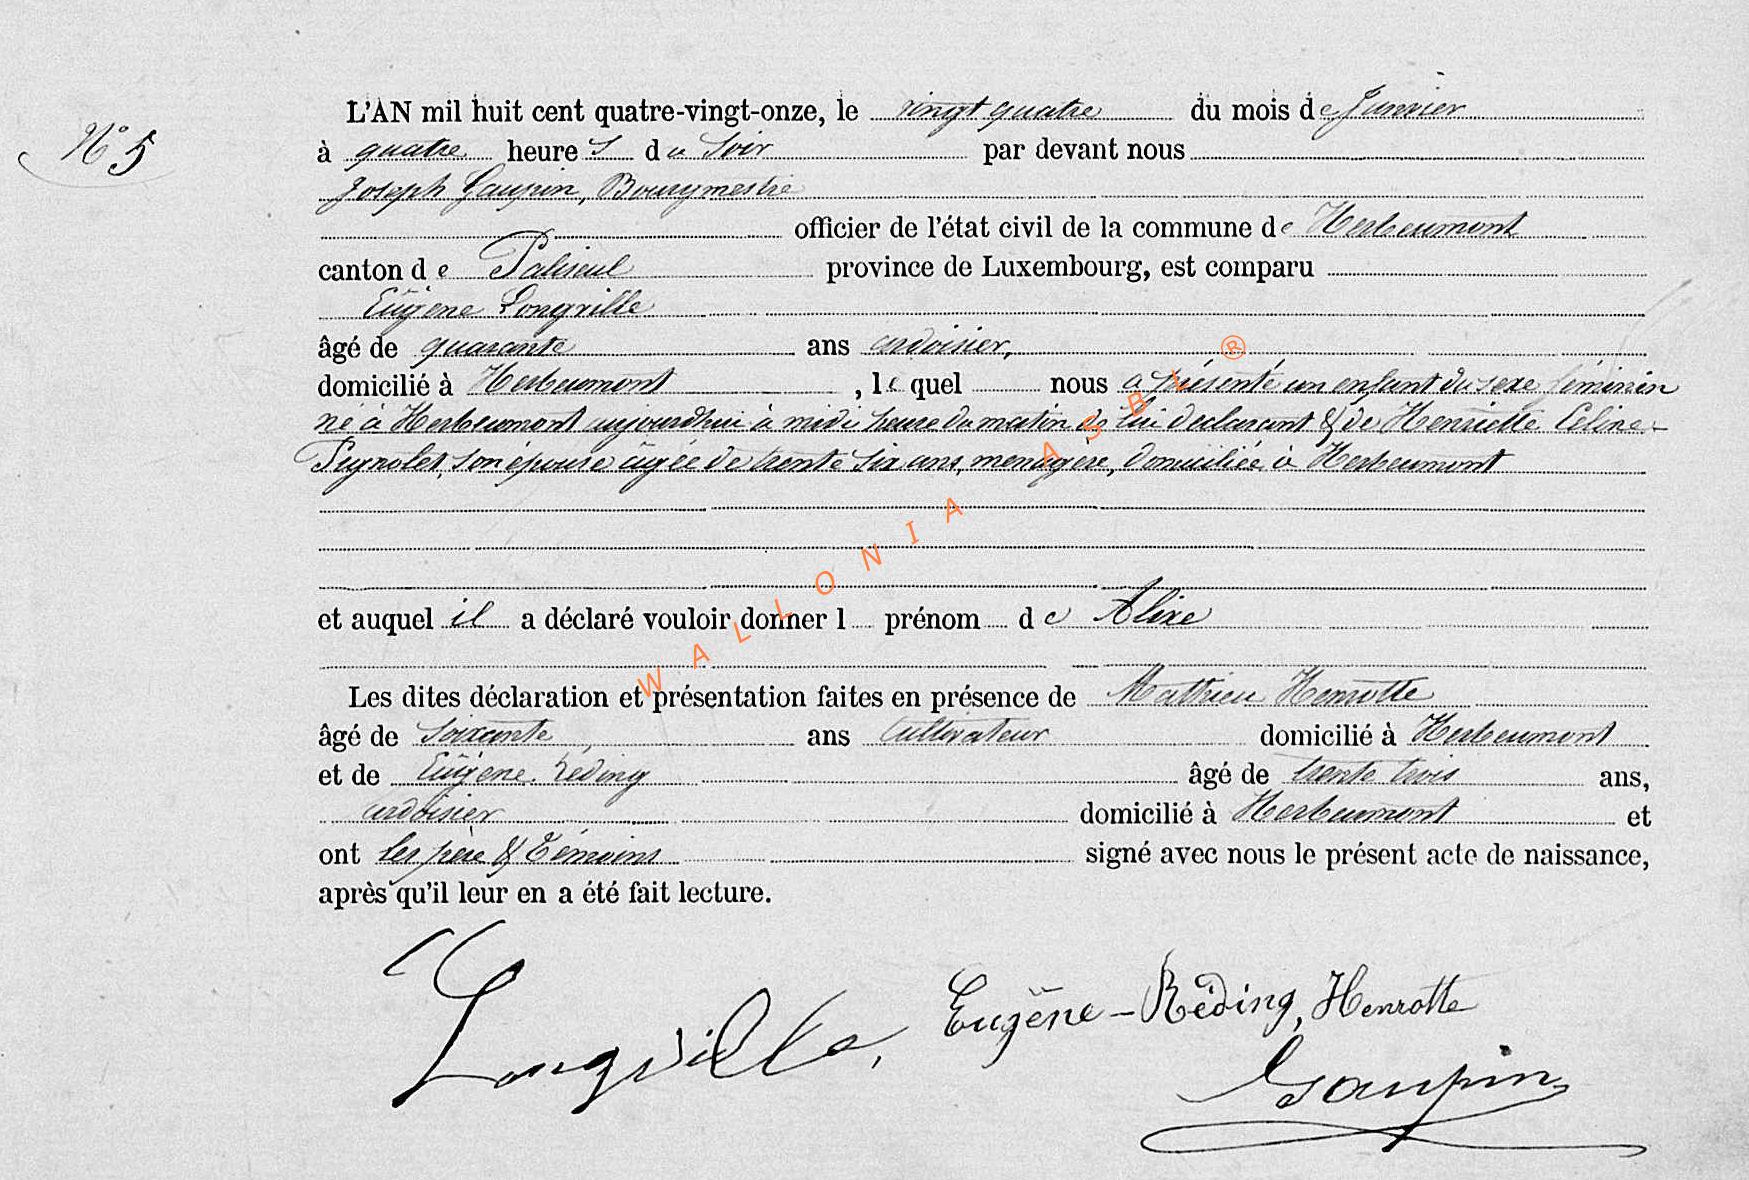 N° 5
L'AN mil huit cent quatre-vingt-onze, le vingt quatre du mois de Janvier
à quatre heures du soir par devant nous
Joseph Gaupin, Bourgmestre
officier de l'état civil de la commune de Herbeumont
canton de Paliseul province de Luxembourg, est comparu
Eugène Longville
âgé de quarante ans ardoisier,
domicilié à Herbeumont, lequel nous a présenté un enfant du sexe féminin
né à Herbeumont aujourdhui à midi heure du matin de lui declarant & de Henriette Celine
Pignolet, son épouse âgée de trente six ans, menagère, domiciliée à Herbeumont
et auquel il a déclaré vouloir donner l prénom de Alixe
Les dites déclaration et présentation faites en présence de Mathieu Henrotte
âgé de soixante ans cultivateur domicilié à Herbeumont
et de Eugène Réding âgé de trente trois ans,
ardoisier domicilié à Herbeumont et
ont les père & témoins signé avec nous le présent acte de naissance,
après qu'il leur en a été fait lecture.
Longville, Eugène-Réding, Henrotte
Gaupin
WALLONIA ASBL ®